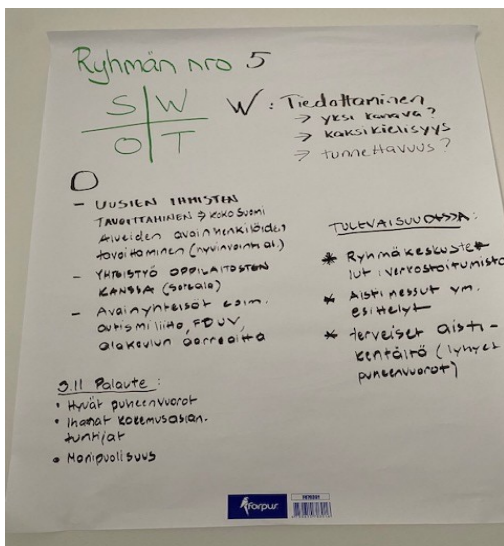 Ryhmän nro 5
S W
O T
W: Tiedottaminen
→ yksi kanava?
→ kaksikielisyys
→ tunnettavuus?
O
- UUSIEN IHMISTEN
TAVOITTAMINEN → KOKO SUOMI
Alueiden avainhenkilöiden
tavoittaminen (hyvinvointial.)
- YHTEISTYÖ OPPILAITOSTEN
KANSSA (
- Avainyhteisöt esim.
autismiliitto, FDUV,
alakoulun aarreaitta
3.11 Palaute:
• Hyvät puheenvuorot
• Ihanat kokemusasian-
tuntijat
• Monipuolisuus
TULEVAISUUDESSA:
* Ryhmäkeskuste-
lut: verkostoitumista
* Aistimessut ym.
esittelyt
* terveiset aisti-
kentältä (lyhyet
puheenvuorot)
forpus